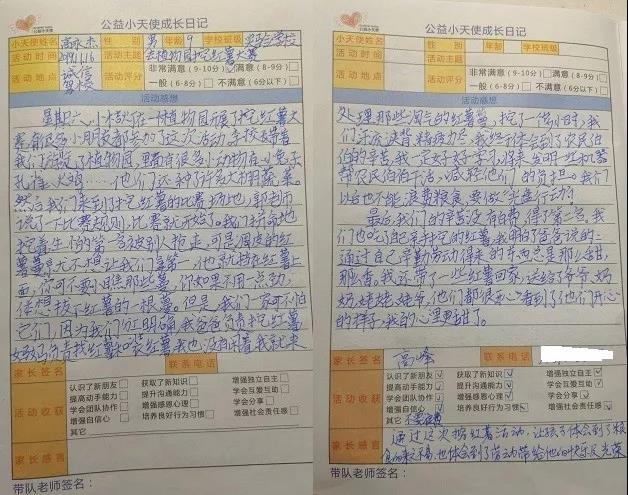 公益小天使成长日记
小天使姓名 性别 男 年龄 9 学校班级 实验学校
活动时间 活动主题 去植物园挖红薯大赛
活动地点 活动评分 非常满意(9-10分) 满意(8-9分)
一般(6-8分) 不满意(6分以下)
活动感想
星期六,小水孩在一林植物园开展了挖红薯大
赛,有很多小朋友都参加了这次活动,李校长带着
我们游览了植物园,里面有很多小动物有小兔子
孔雀、火鸡……他们还种了许多大棚蔬菜。
然后我们来到挖红薯的比赛场地,郭老师
说了一下比赛规则,比赛就开始了。我们拼命地
挖着生怕第一名被别人抢走,可是调皮的红
薯蔓尤不想让我们拿第一,他就挡在红薯上
面,你可不要小瞧那些蔓,你如果不用一点劲,
休想拔下红薯的一根蔓。但是,我们一家可不怕
它们,因为我们分工明确,我爸爸负责挖红薯
妈妈负责找红薯和装红薯我也没有闲着我就来
家长签名 联系电话
活动收获
认识了新朋友 获取了新知识 增强独立自主
提高动手能力 提升沟通能力 学会互爱互助
学会团队协作 增强感恩心理 学会分享
增强自信心 培养良好行为习惯 增强社会责任感
其它
家长感言
带队老师签名:
公益小天使成长日记
小天使姓名 性别 年龄 学校班级
活动时间 活动主题
活动地点 活动评分 非常满意(9-10分) 满意(8-9分)
一般(6-8分) 不满意(6分以下)
活动感想
处理那些淘气的红薯蔓,挖了一个小时,我
们汗流浃背精疲力尽,我终于体会到了农民伯
伯的辛苦,我一定好好学习,将来发明一些机器
帮农民伯伯干活,减轻他们的负担。我们
以后也不能浪费粮食,要做“光盘行动”
最后我们的辛苦没有白费,得了第二名,我
们也吃了自己亲手挖的红薯,我明白爸爸说的:
通过自己辛勤劳动得来的东西总是那么甜,
那么香。我还带了一些红薯回家,送给了爷爷、奶
奶、姥姥、姥爷,他们都很开心,看到了他们开心
的样子,我的心里更甜了。
家长签名 高峰 联系电话
活动收获
认识了新朋友 获取了新知识 增强独立自主
提高动手能力 提升沟通能力 学会互爱互助
学会团队协作 增强感恩心理 学会分享
增强自信心 培养良好行为习惯 增强社会责任感
其它 不要浪费
家长感言
通过这次挖红薯活动,让孩子体会到了粮
食的来之不易,也体会到了劳动带给他的快乐及光荣
带队老师签名: